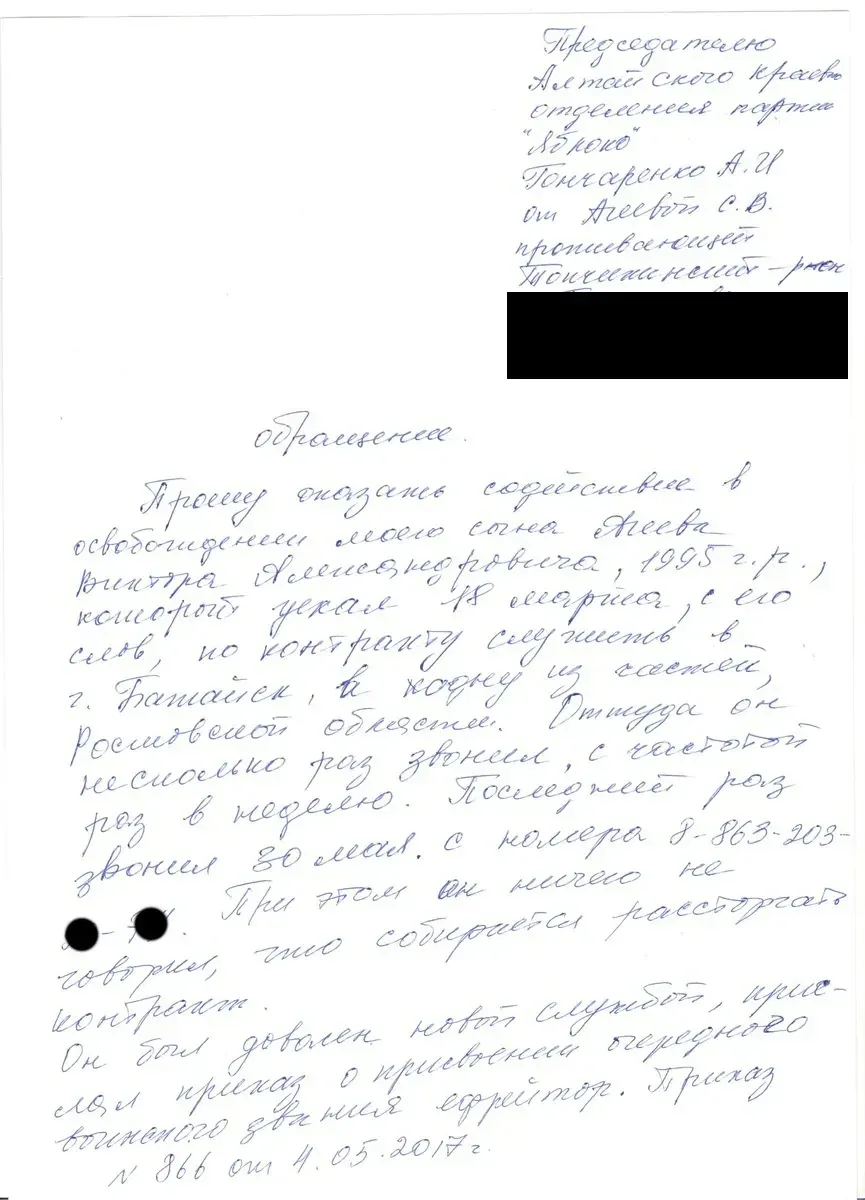 Председателю
Алтайского краевго
отделения партии
"Яблоко"
Гончаренко А.И
от Агеевой С.В.
проживающей
Топчихинский – район
обращение.
Прошу оказать содействие в
освобождении моего сына Агеева
Виктора Александровича, 1995 г.р.,
который уехал 18 марта, с его
слов, по контракту служить в
г. Батайск, в одну из частей,
Ростовской области. Оттуда он
несколько раз звонил, с частотой
раз в неделю. Последний раз
звонил 30 мая. с номера 8-863-203-
При этом он ничего не
говорил, что собирается расторгать
контракт.
Он был доволен новой службой, прис-
лал приказ о присвоении очередного
воинского звания ефрейтор. Приказ
N 866 от 4.05.2017г.